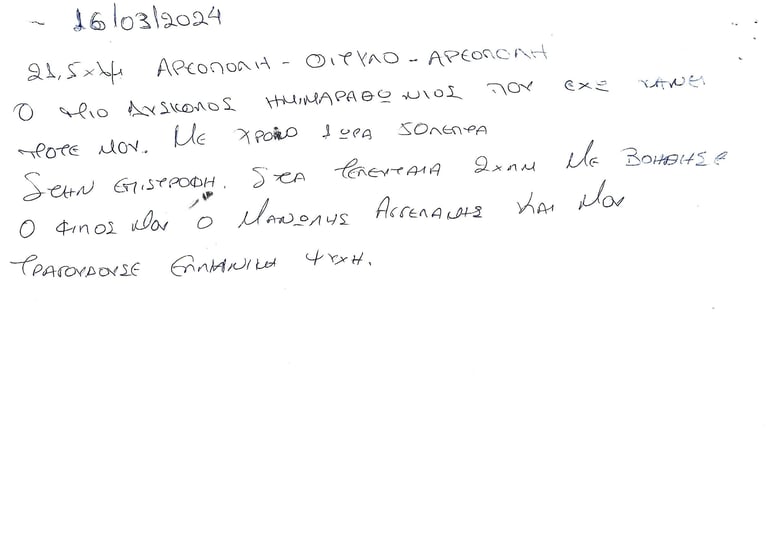 ~ 16/03/2024
21,5 χλμ ΑΡΕΟΠΟΛΗ - ΟΙΤΥΛΟ - ΑΡΕΟΠΟΛΗ
Ο ΠΙΟ ΔΥΣΚΟΛΟΣ ΗΜΙΜΑΡΑΘΩΝΙΟΣ ΠΟΥ ΕΧΩ ΚΑΝΕΙ
ΠΟΤΕ ΜΟΥ. ΜΕ ΧΡΟΝΟ 1 ΩΡΑ 50ΛΕΠΤΑ
ΣΤΗΝ ΕΠΙΣΤΡΟΦΗ. ΣΤΑ ΤΕΛΕΥΤΑΙΑ 2ΧΛΜ ΜΕ ΒΟΗΘΗΣΕ
Ο ΦΙΛΟΣ ΜΟΥ Ο ΜΑΝΩΛΗΣ ΚΑΙ ΜΟΥ
ΤΡΑΓΟΥΔΟΥΣΕ ΕΛΛΗΝΙΚΗ ΨΥΧΗ.